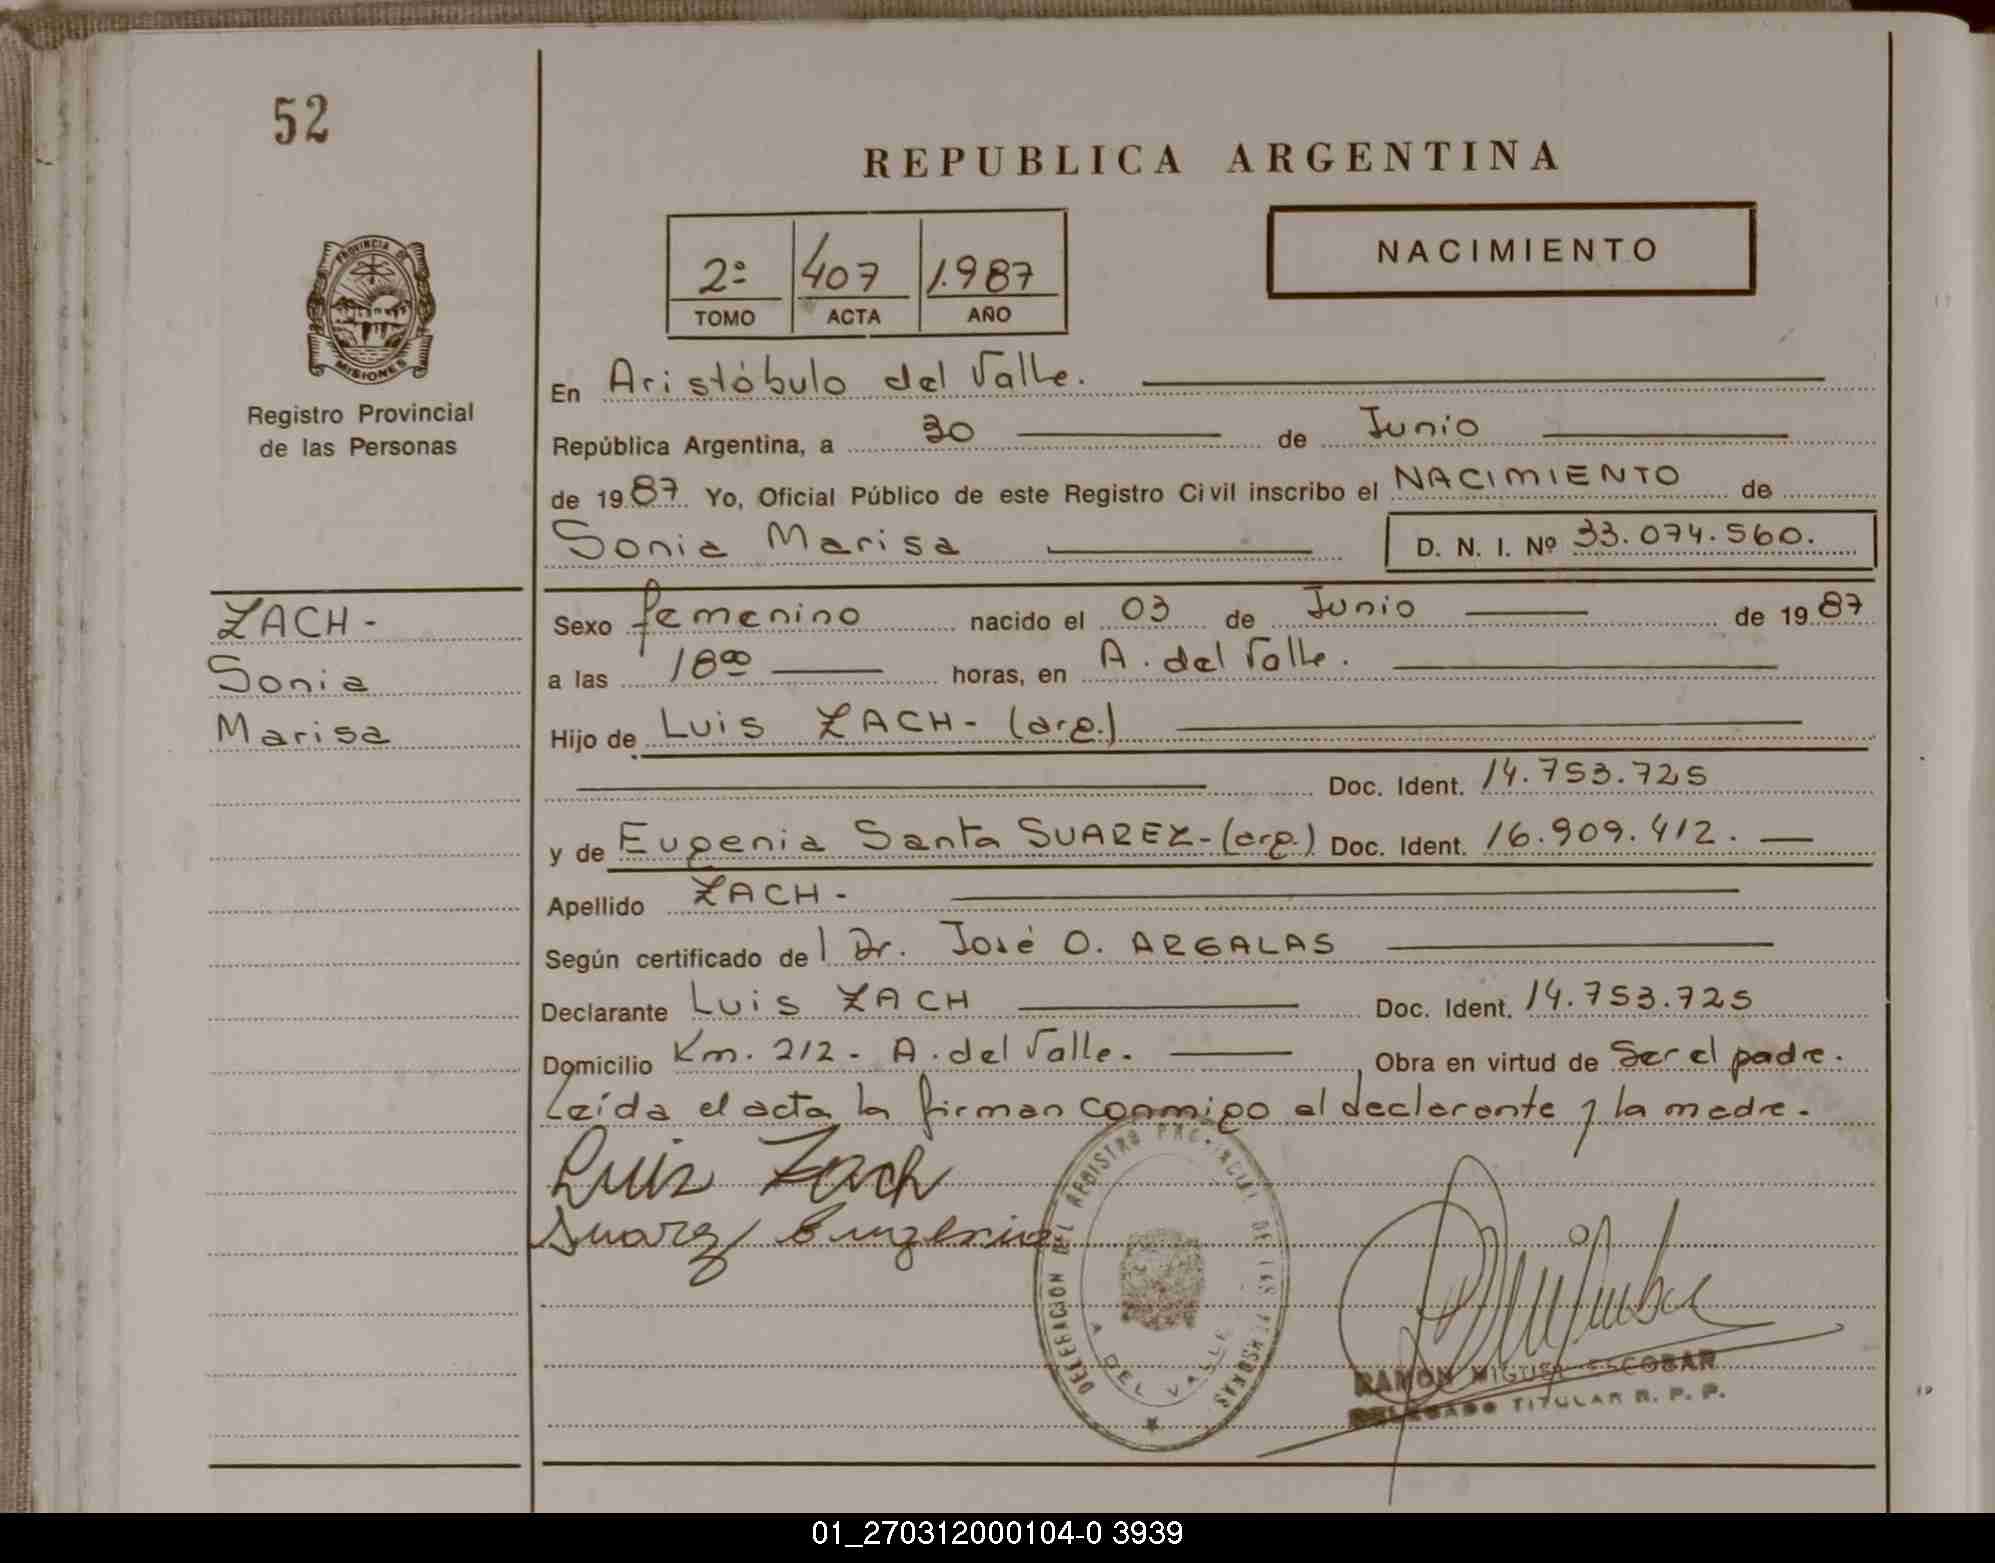 52
REPUBLICA ARGENTINA
NACIMIENTO
2º 407 1.987
TOMO ACTA AÑO
PROVINCIA DE
MISIONES
Registro Provincial
de las Personas
En Aristóbulo del Valle.
República Argentina, a 30 de Junio
de 1987. Yo, Oficial Público de este Registro Civil inscribo el NACIMIENTO de
Sonia Marisa D. N. I. Nº 33.074.560.
ZACH-
Sonia
Marisa
Sexo femenino nacido el 03 de Junio de 1987
a las 18⁰⁰ horas, en A. del Valle.
Hijo de Luis ZACH- (arg.)
Doc. Ident. 14.753.725
y de Eugenia Santa SUAREZ-(arg.) Doc. Ident. 16.909.412.
Apellido ZACH-
Según certificado del Dr. José O. ARGALAS
Declarante Luis ZACH Doc. Ident. 14.753.725
Domicilio Km. 212- A. del Valle. Obra en virtud de Ser el padre.
Leída el acta la firman conmigo el declarante y la madre.
Luis Zach
Suarez Eugenia
DELEGACION DEL REGISTRO PROVINCIAL DE LAS PERSONAS
A. DEL VALLE
RAMON MIGUEL ESCOBAR
DELEGADO TITULAR R. P. P.
01_270312000104-0 3939